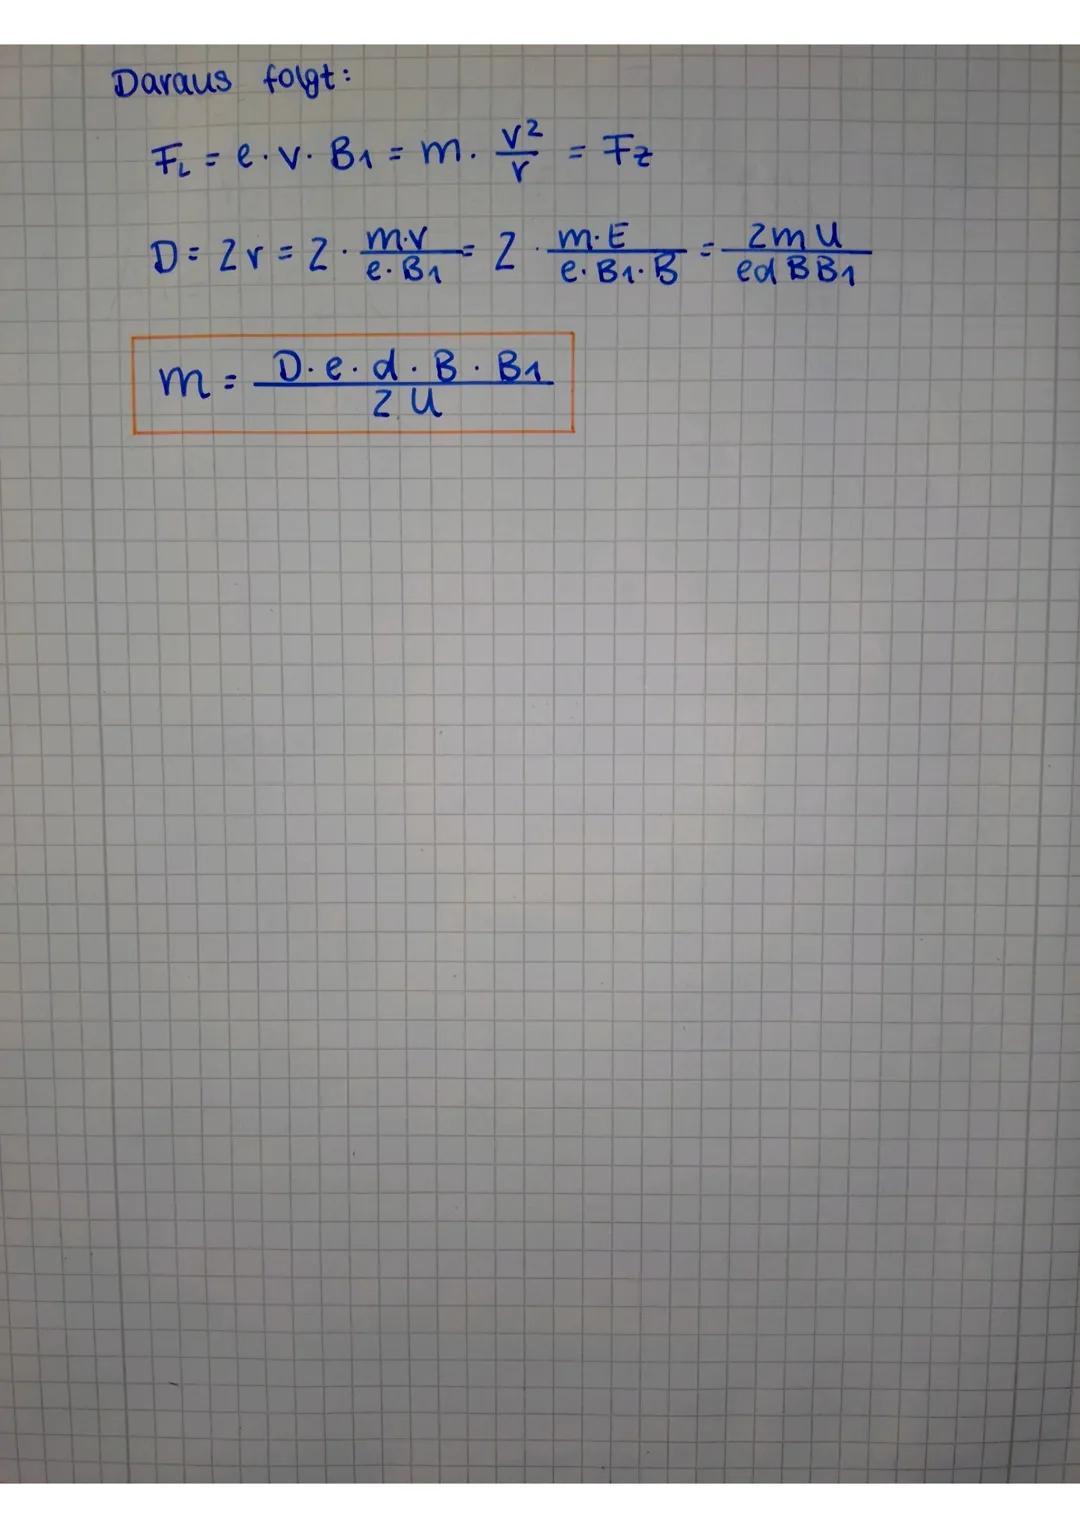 Daraus folgt:
F_L = e · v · B₁ = m · v²/r = F_z
D = 2r = 2 · m·v/e·B₁ = 2 · m·E/e·B₁·B = 2mU/edBB₁
m = D·e·d·B·B₁/2U